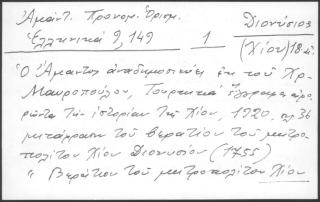 Ἀμάντ. Προνομ. Ὁρισμ. Διονύσιος
Ἑλληνικά 9, 149 1 (Χίου) 18
Ὁ Ἄμαντος ἀναδημοσιεύει ἐκ τοῦ Χρ.
Μαυροπούλου, Τουρκικά ἔγγραφα ἀφο-
ρῶντα τὴν ἱστορίαν τῆς Χίου, 1920, σ. 36
μετάφρασιν τοῦ βερατίου τοῦ μητρο-
πολίτου Χίου Διονυσίου (1755)
" Βεράτιον τοῦ μητροπολίτου Χίου